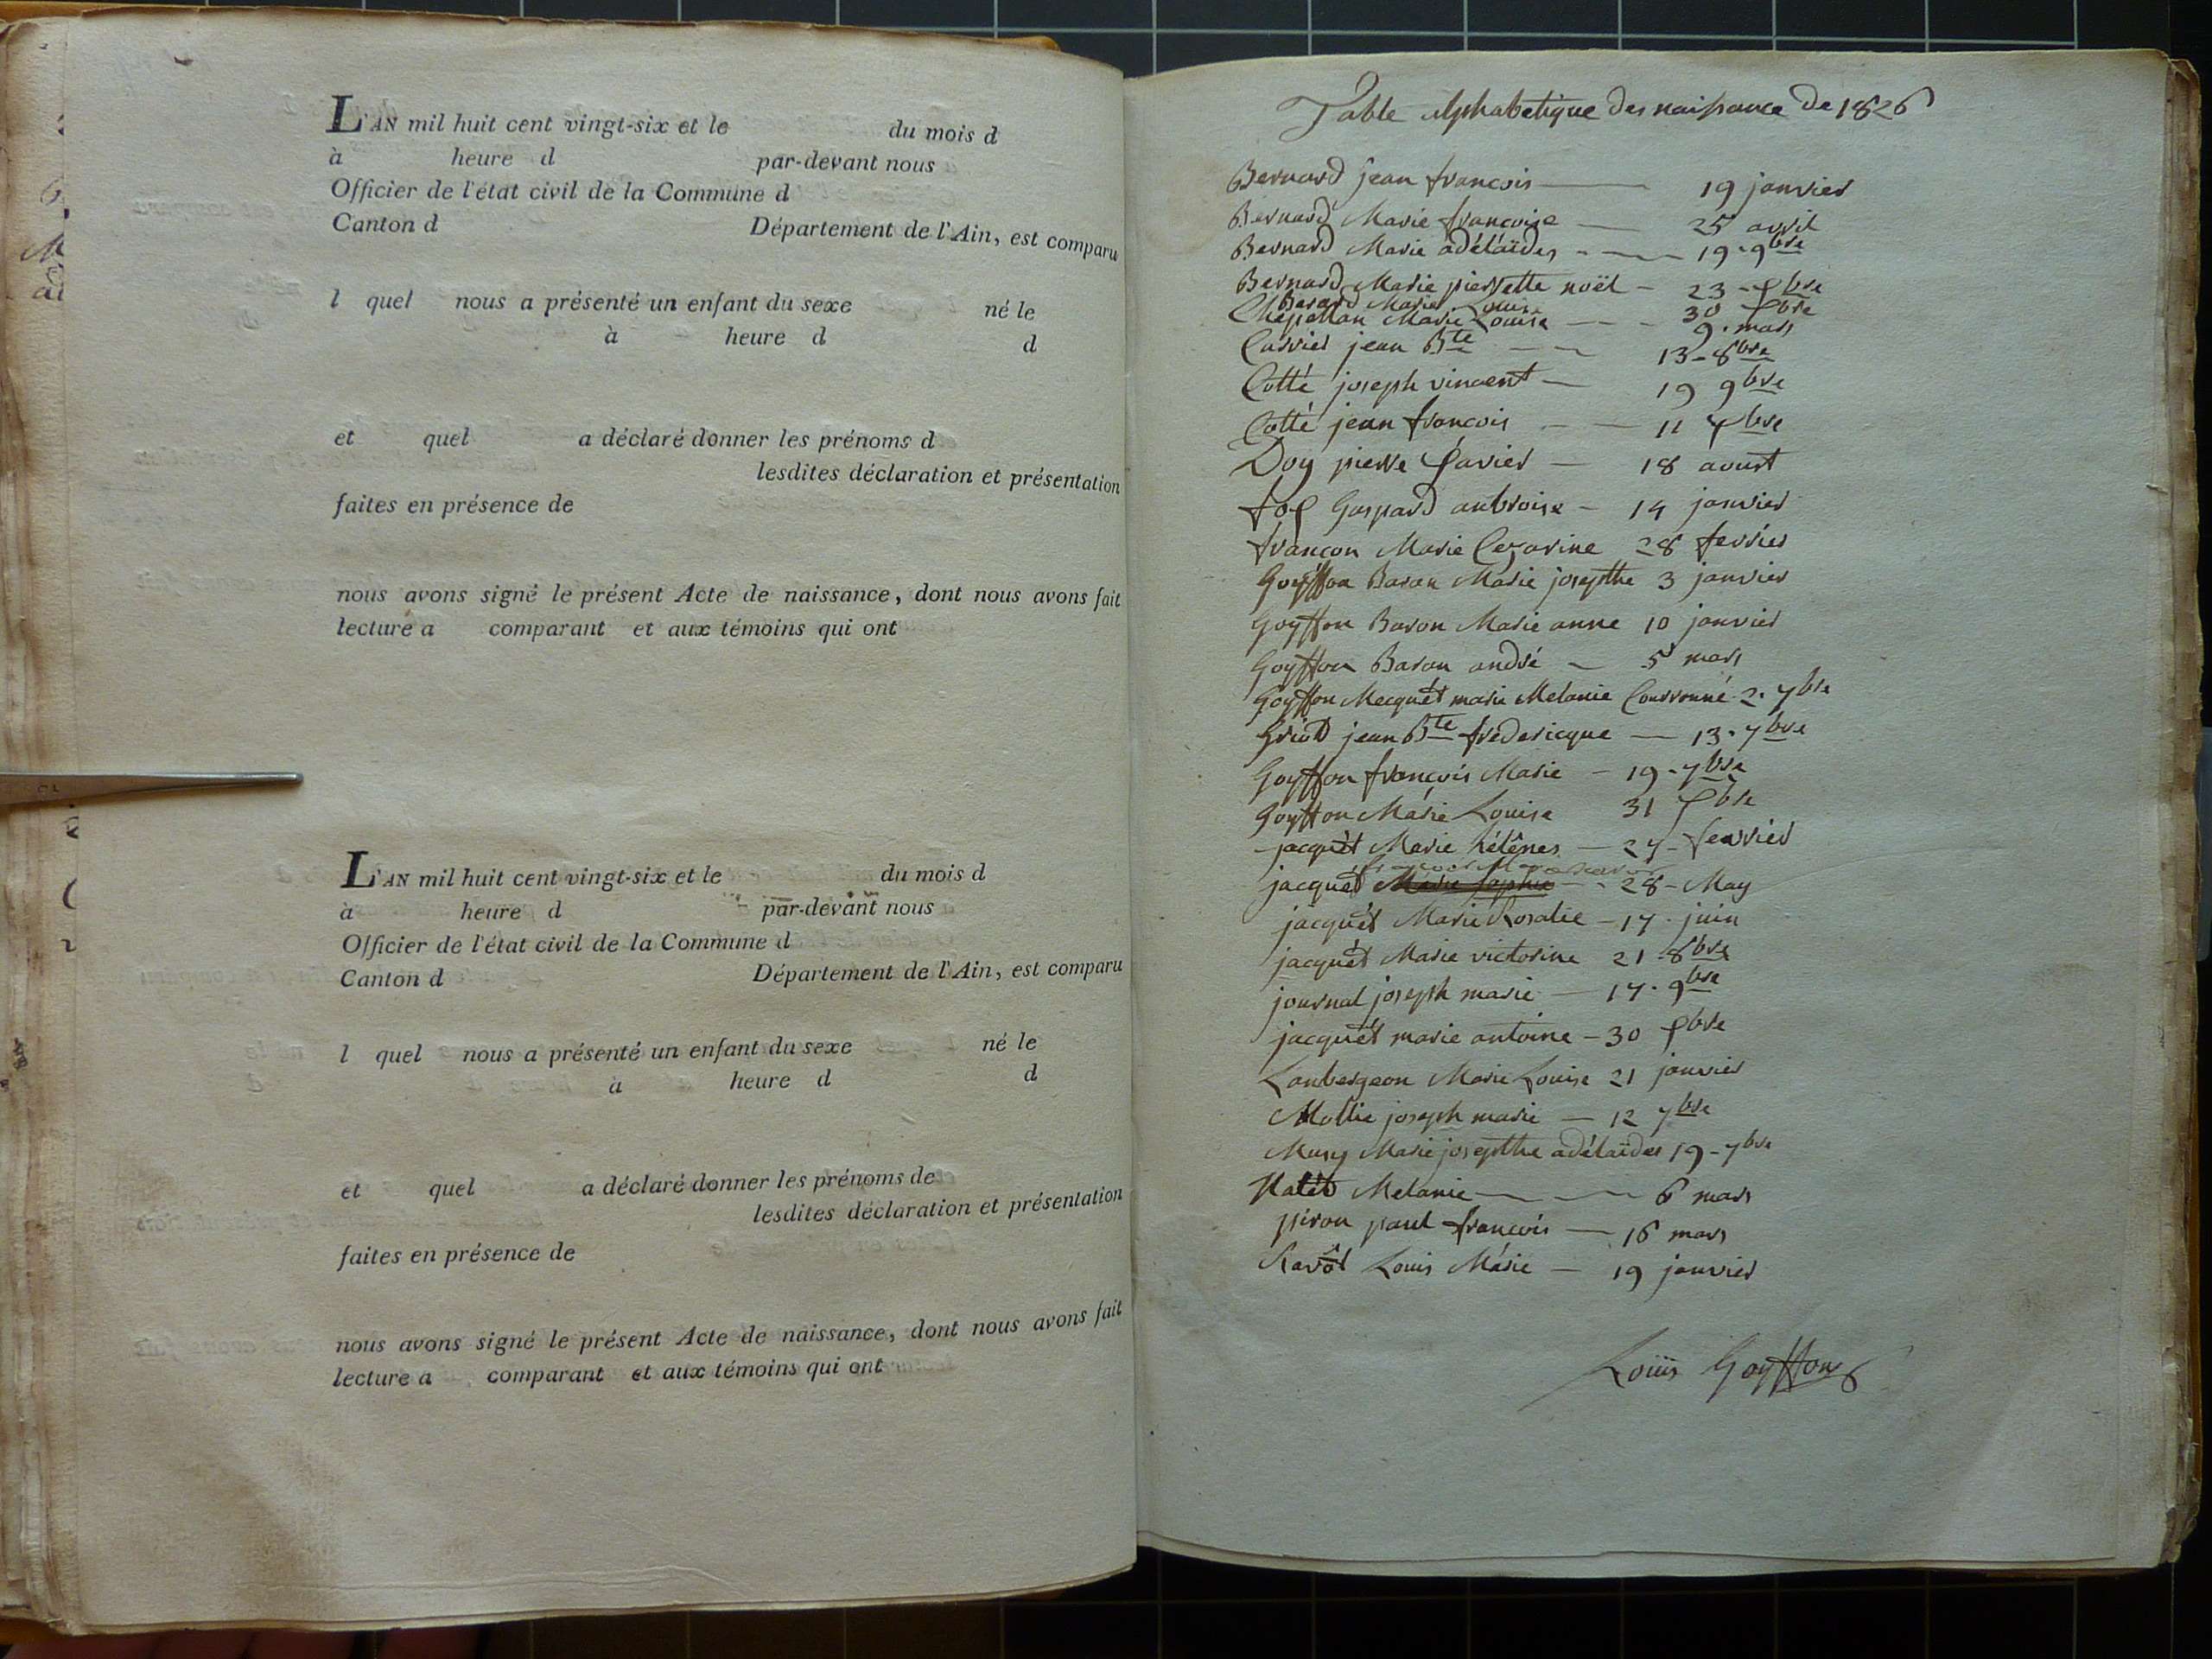 L'AN mil huit cent vingt-six et le du mois d
à heure d par-devant nous
Officier de l'état civil de la Commune d
Canton d Département de l'Ain, est comparu
l quel nous a présenté un enfant du sexe né le
à heure d d
et quel a déclaré donner les prénoms d
lesdites déclaration et présentation
faites en présence de
nous avons signé le présent Acte de naissance, dont nous avons fait
lecture a comparant et aux témoins qui ont
L'AN mil huit cent vingt-six et le du mois d
à heure d par-devant nous
Officier de l'état civil de la Commune d
Canton d Département de l'Ain, est comparu
l quel nous a présenté un enfant du sexe né le
à heure d d
et quel a déclaré donner les prénoms de
lesdites déclaration et présentation
faites en présence de
nous avons signé le présent Acte de naissance, dont nous avons fait
lecture a comparant et aux témoins qui ont
Table Alphabetique des naissance de 1826
Bernard jean francois 19 janvier
Bernard Marie francoise 25 avril
Bernard Marie adélaïdes 19 - 9bre
Bernard Marie pierrette noël - 23 - Xbre
Berard Marie Louise 30 Xbre
Chapellan Marie Louise 9. mars
Carrier jean Bte 13 - 8bre
Cotté joseph vincent 19 9bre
Cotté jean francois 11 Xbre
Doy pierre Xavier 18 aoust
fox Gaspard anbroise - 14 janvier
françon Marie Cezarine 28 fevrier
Goyffon Baron Marie josepthe 3 janvier
Goyffon Baron Marie anne 10 janvier
Goyffon Baron andré 5 mars
Goyffon Mecquét marie Melanie Courronné 2. 7bre
jean Bte fréderique 13. 7bre
Goyffon francois Marie - 19 - 7bre
Goyffon Marie Louise 31 Xbre
jacquét Marie hélênes - 27 - feuvrier
jacquét Marie Sophie 28 - May
jacquét Marie Rosalie - 17. juin
jacquét Marie victorine 21 8bre
journal joseph marie 17. 9bre
jacquét marie antoine - 30 Xbre
Lanbergeon Marie Louise 21 janvier
Mollie joseph marie 12 7bre
Musy Marie josepthe adélaïdes 19 - 7bre
Melanie 6 mars
piron paul francois 16 mars
Ravôt Louis Marie 19 janvier
Loüis Goyffon